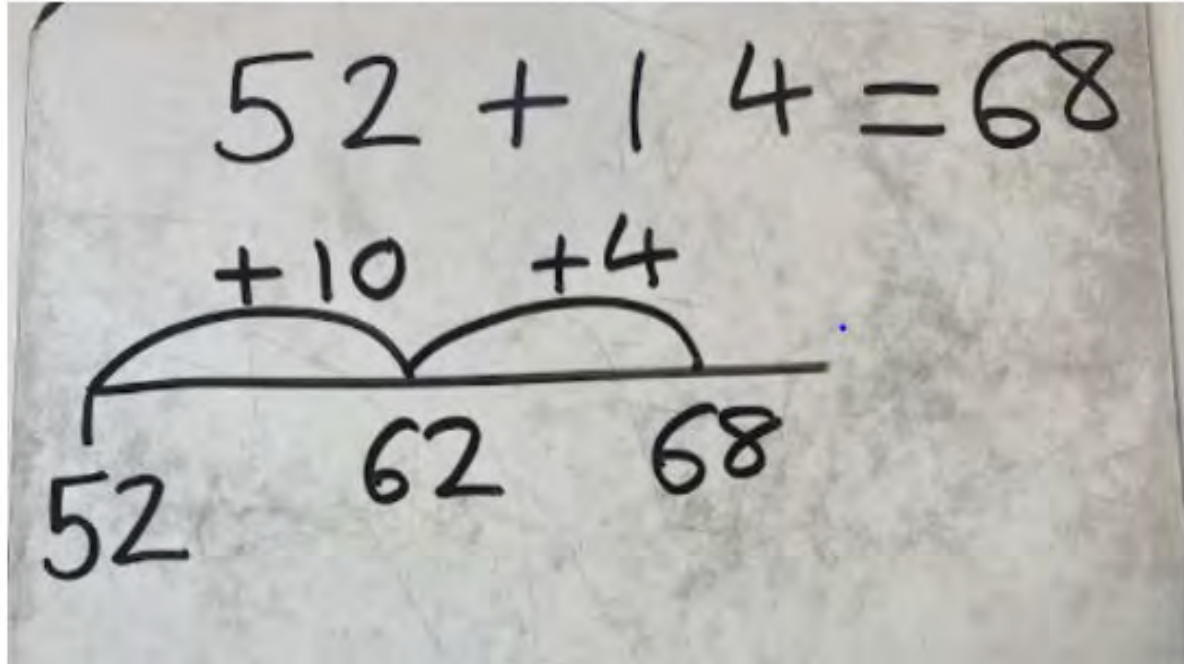 52 + 14 = 68
+10 +4
52 62 68